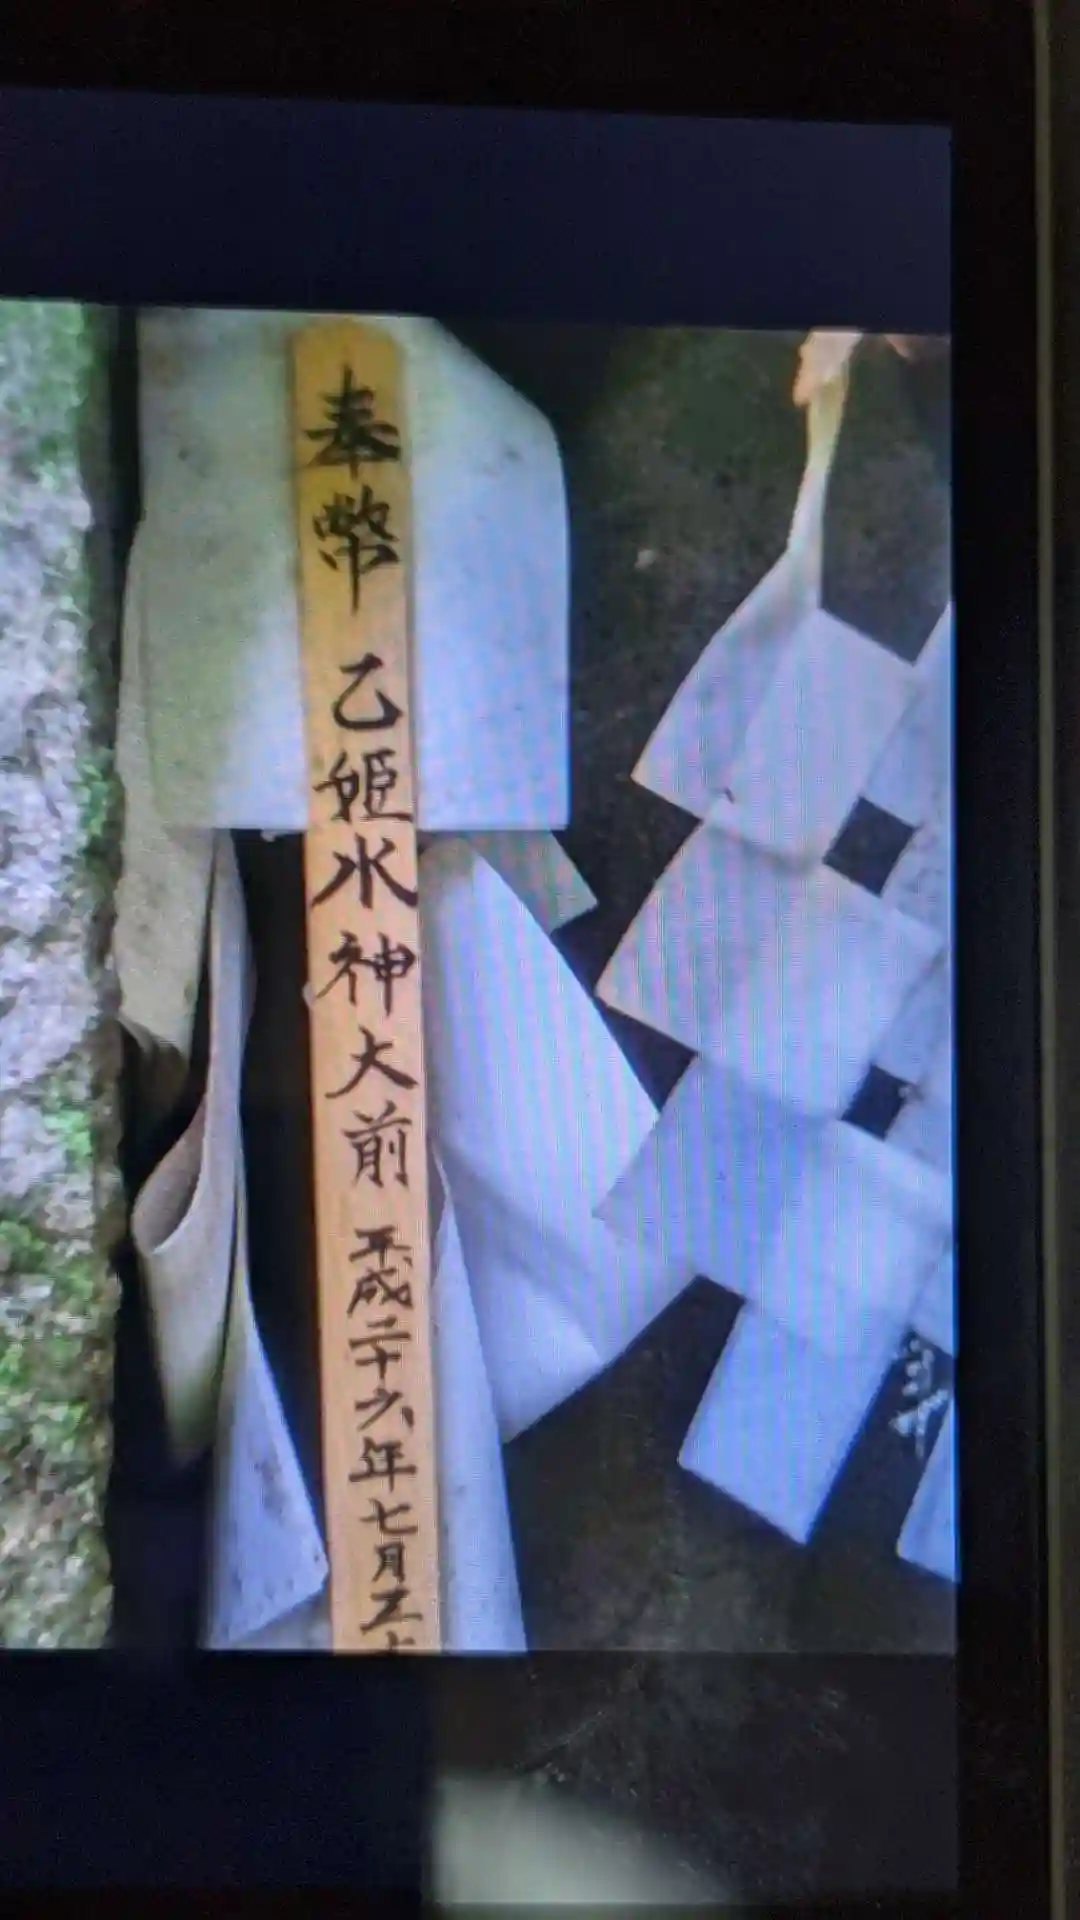 奉幣 乙姫水神大前 平成二十六年七月